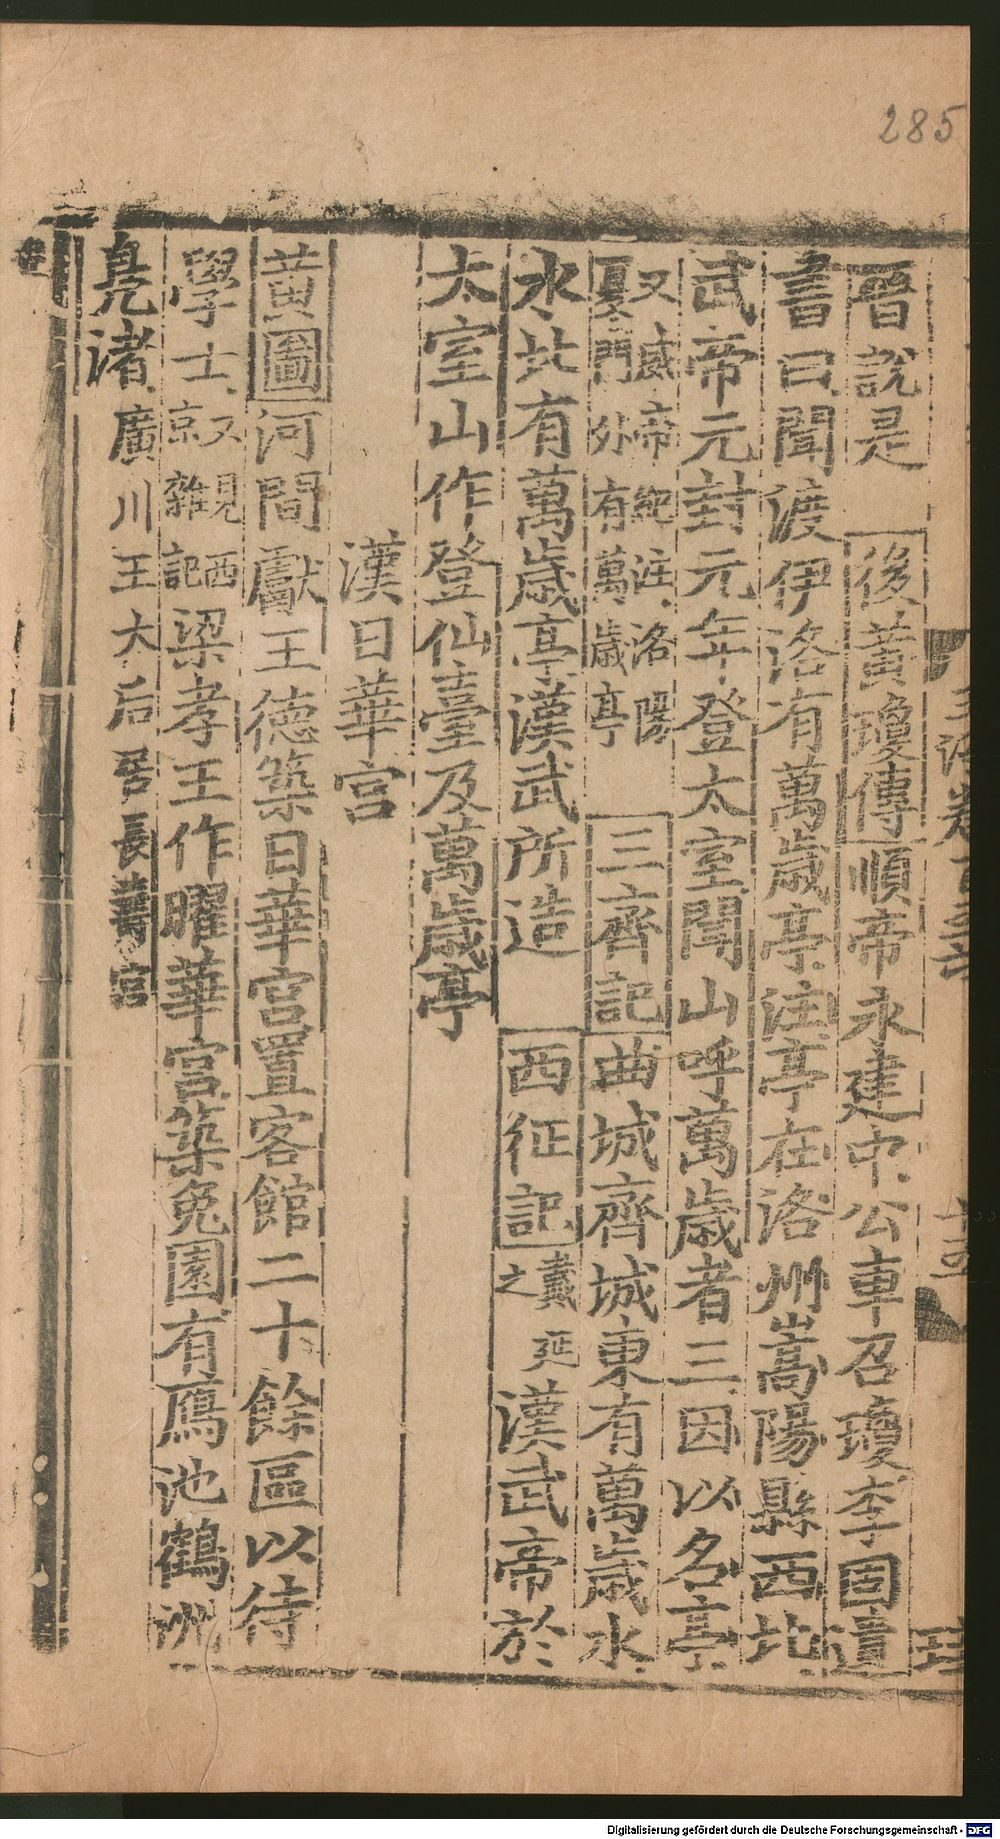 285
晉說是 後黃瓊傳 順帝永建中公車召瓊李固遺
書曰聞渡伊洛有萬歲亭注亭在洛州嵩陽縣西北
武帝元封元年登太室聞山呼萬歲者三因以名亭
又威帝紀注洛陽
夏門外有萬歲亭
三齊記 曲城齊城東有萬歲水
水北有萬歲亭漢武所造 西征記 戴延之 漢武帝於
太室山作登仙臺及萬歲亭
漢日華宮
黃圖 河間獻王德築日華宮置客館二十餘區以待
學士 又見西京雜記 梁孝王作曜華宮築兔園有鴈池鶴洲
鳧渚 廣川王大后居長壽宮
Digitalisierung gefördert durch die Deutsche Forschungsgemeinschaft - DFG